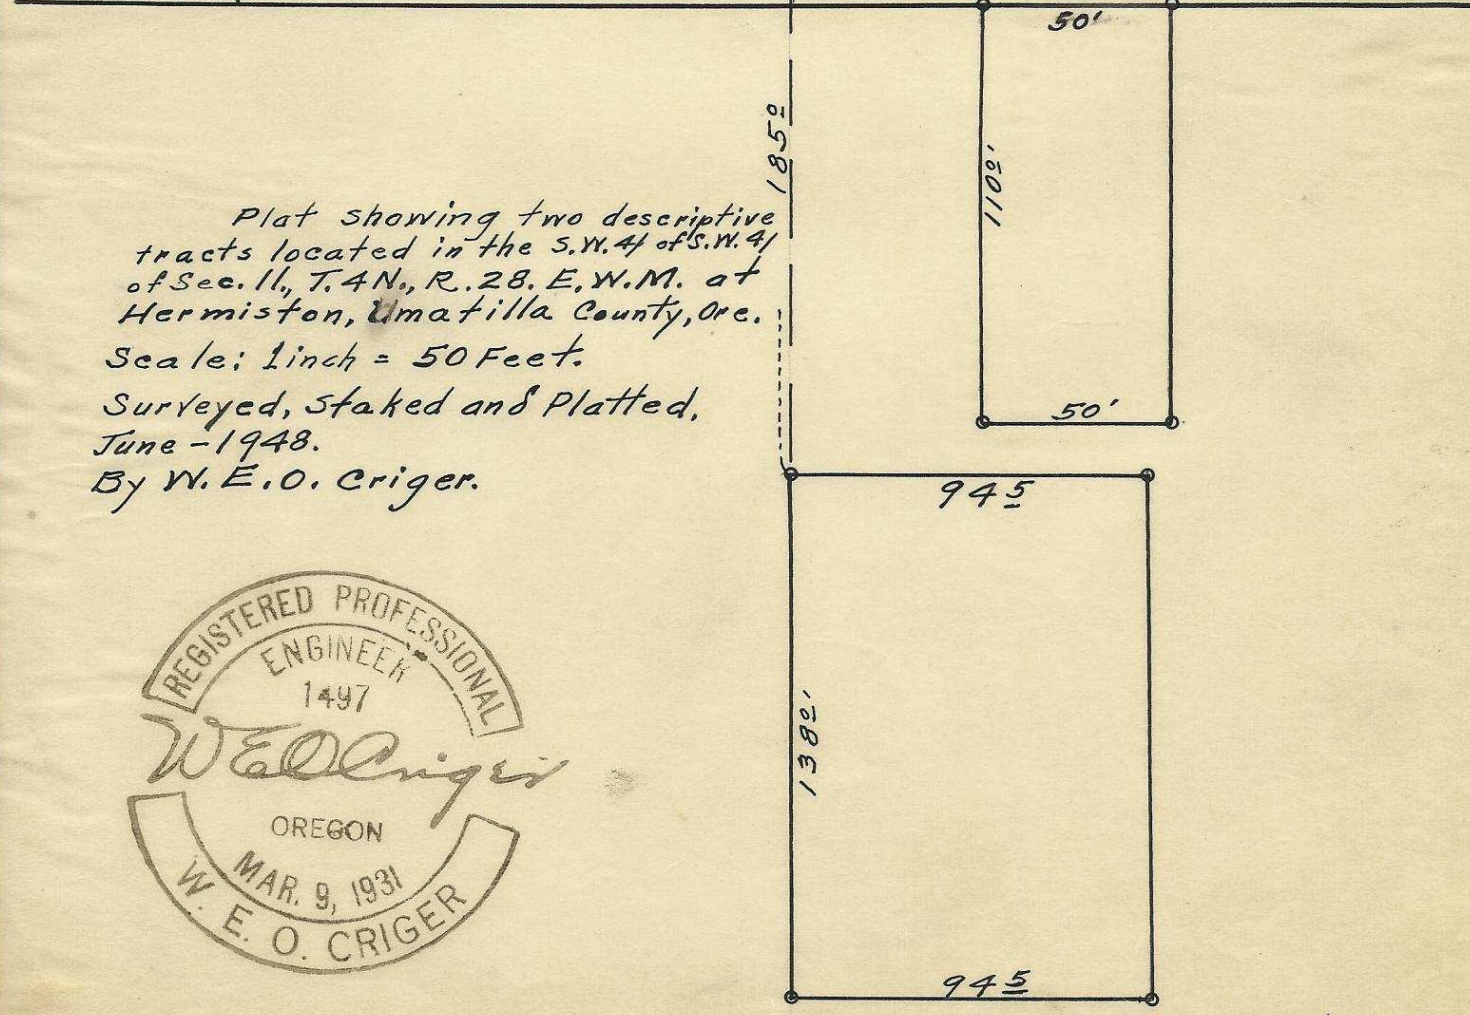 50'
185º
110º'
Plat showing two descriptive
tracts located in the S.W.4/ of S.W.4/
of Sec. 11., T.4N., R.28. E.W.M. at
Hermiston, Umatilla County, Ore.
Scale: 1 inch = 50 Feet.
Surveyed, Staked and Platted,
June - 1948.
By W.E.O. Criger.
50'
94 5
138º'
94 5
REGISTERED PROFESSIONAL
ENGINEER
1497
WEO Criger
OREGON
MAR. 9, 1931
W. E. O. CRIGER